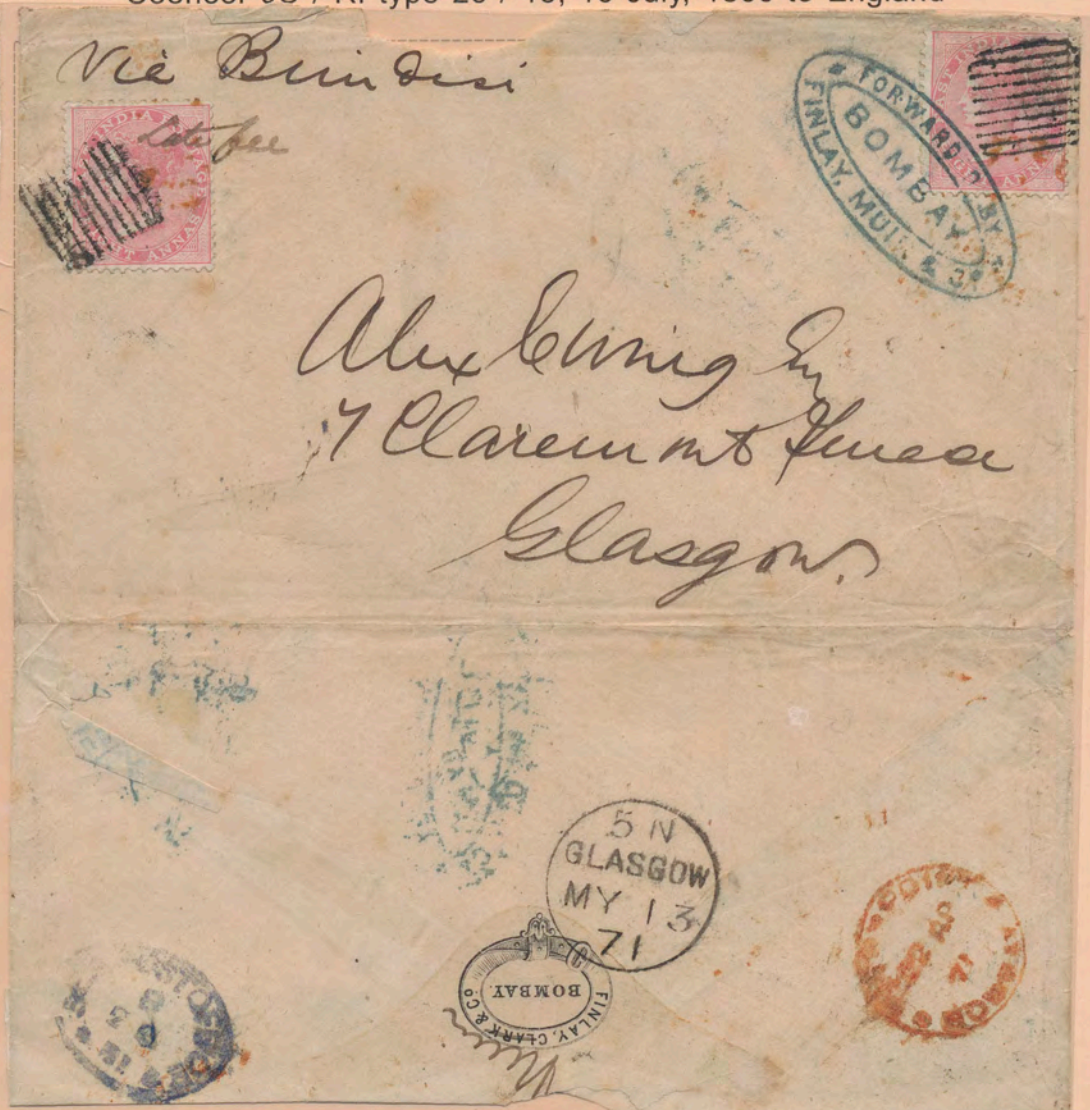 Via Brindisi
Late fee
INDIA
EIGHT ANNAS
EAST INDIA
FORWARDED BY
BOMBAY
FINLAY, MUIR & Co
Alex Ewing Esq
7 Claremont Terrace
Glasgow.
5 N
GLASGOW
MY 13
71
FINLAY, CLARK & Co
BOMBAY.
Muir
71